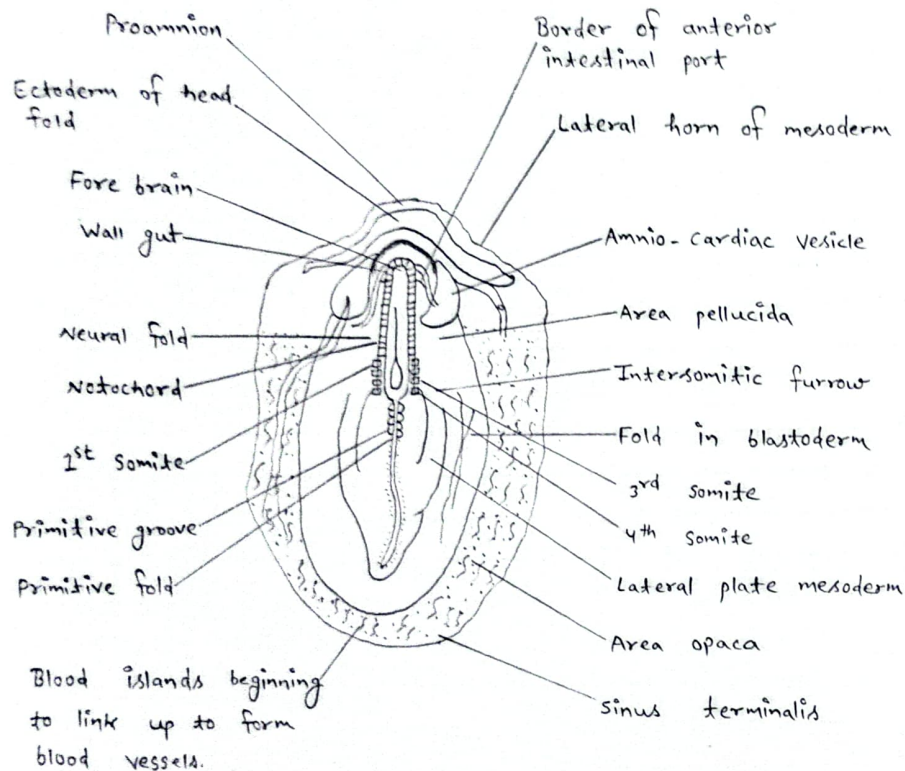 Proamnion
Ectoderm of head
fold
Fore brain
Wall gut
Neural fold
Notochord
1st Somite
Primitive groove
Primitive fold
Blood islands beginning
to link up to form
blood vessels.
Border of anterior
intestinal port
Lateral horn of mesoderm
Amnio-cardiac vesicle
Area pellucida
Intersomitic furrow
Fold in blastoderm
3rd somite
4th somite
Lateral plate mesoderm
Area opaca
Sinus terminalis